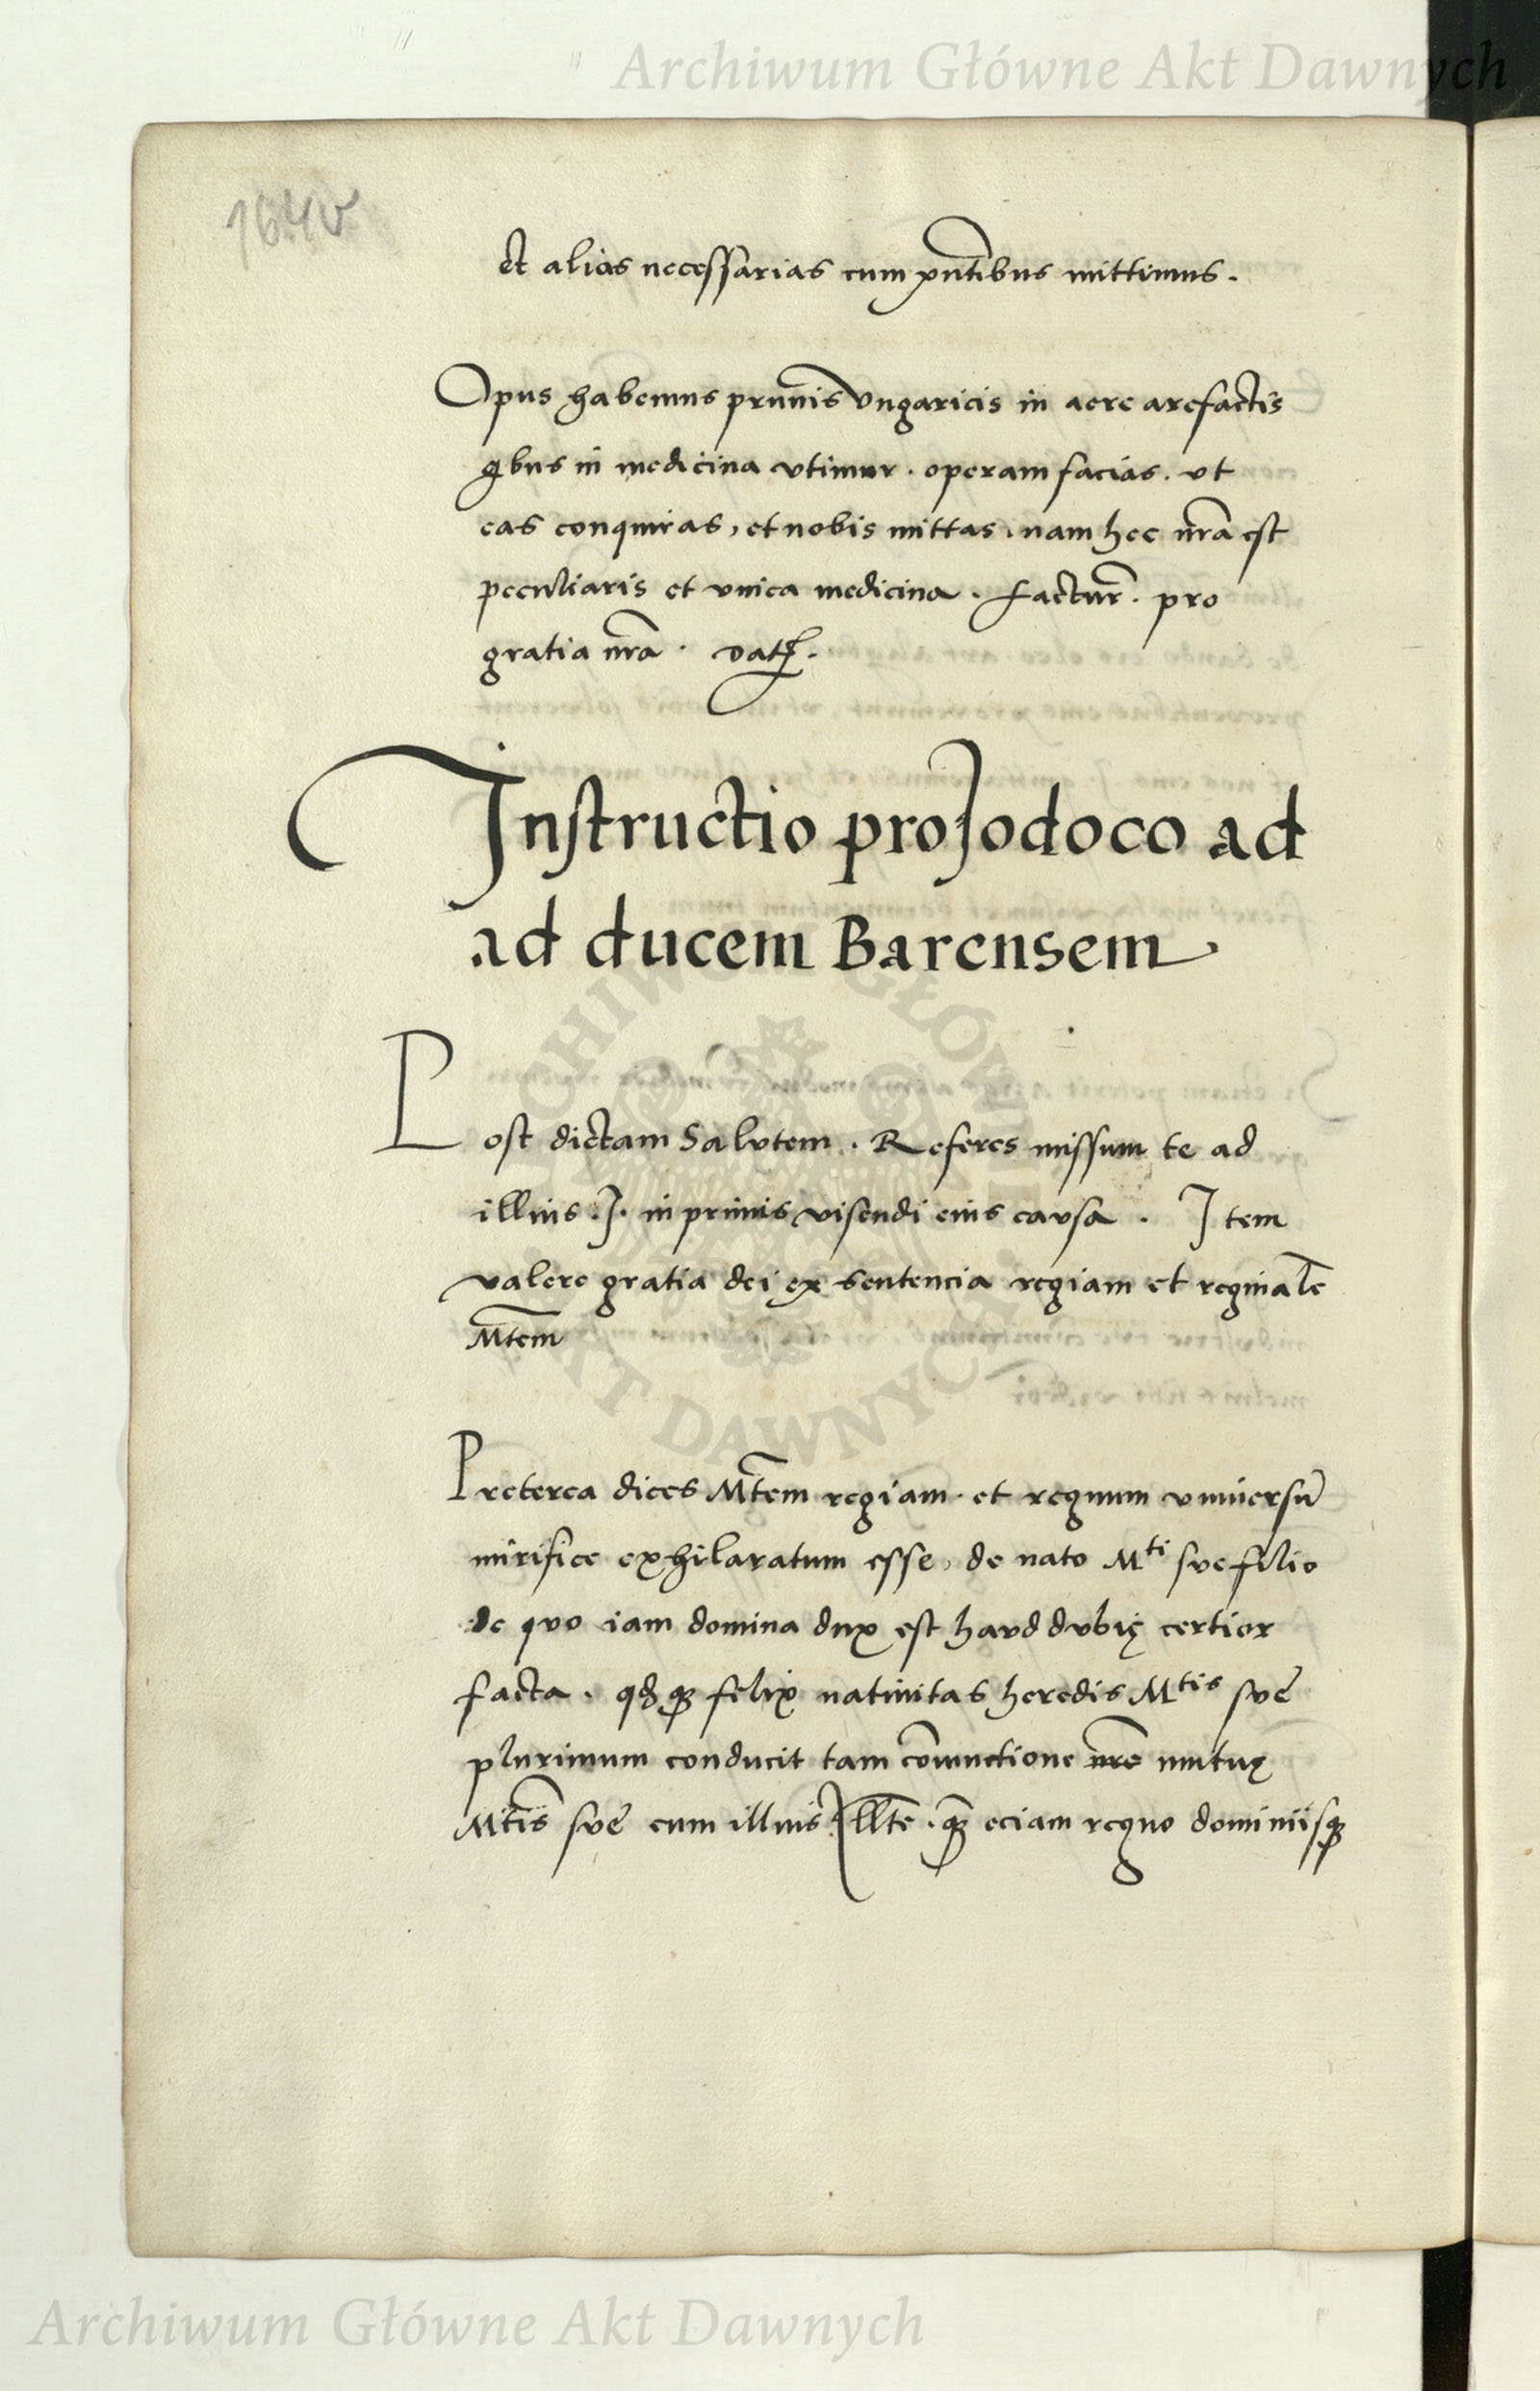 Archiwum Główne Akt Dawnych
164v
et alias necessarias cum pñtibus mittimus.
Opus habemus prunis Vngaricis in aere arefactis
qbus in medicina vtimur. operam facias. vt
eas conquiras, et nobis mittas. nam hec nr̃a est
peculiaris et vnica medicina. Factur̃. pro
gratia nr̃a. Dat.
Instructio pro Jodoco ad
ad ducem Barensem
Post dictam Salvtem. Referes missum te ad
illius .I. in primis visendi eius cavsa. Item
valere gratia dei ex sentencia regiam et reginalē
M̃tem
Preterea dices M̃tem regiam. et regnum vniversũ
mirifice exhilaratum esse, de nato Mti sve filio
de qvo iam domina dux est havd dvbię certior
facta. qđ felix nativitas heredis Mtis svẽ
plurimum conducit tam cõiunctione nr̃e mutuę
Mt̃is svẽ cum illius Illt̃e. eciam regno dominiisq
ARCHIWUM GŁÓWNE
AKT DAWNYCH
Archiwum Główne Akt Dawnych